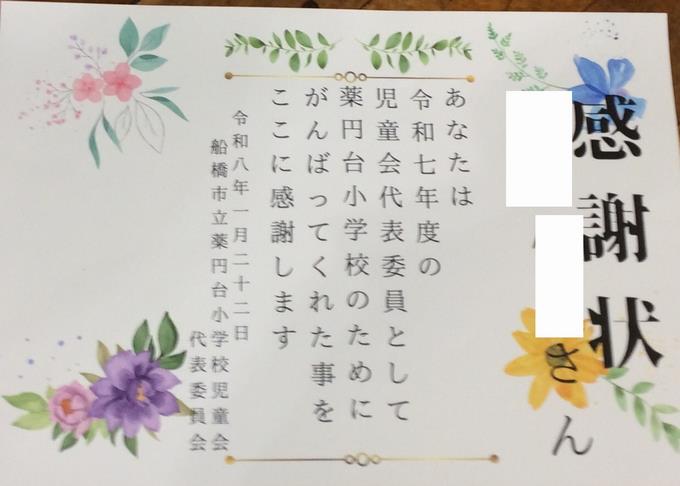 感謝状
さん
あなたは
令和七年度の
児童会代表委員として
薬円台小学校のために
がんばってくれた事を
ここに感謝します
令和八年一月二十二日
船橋市立薬円台小学校児童会
代表委員会